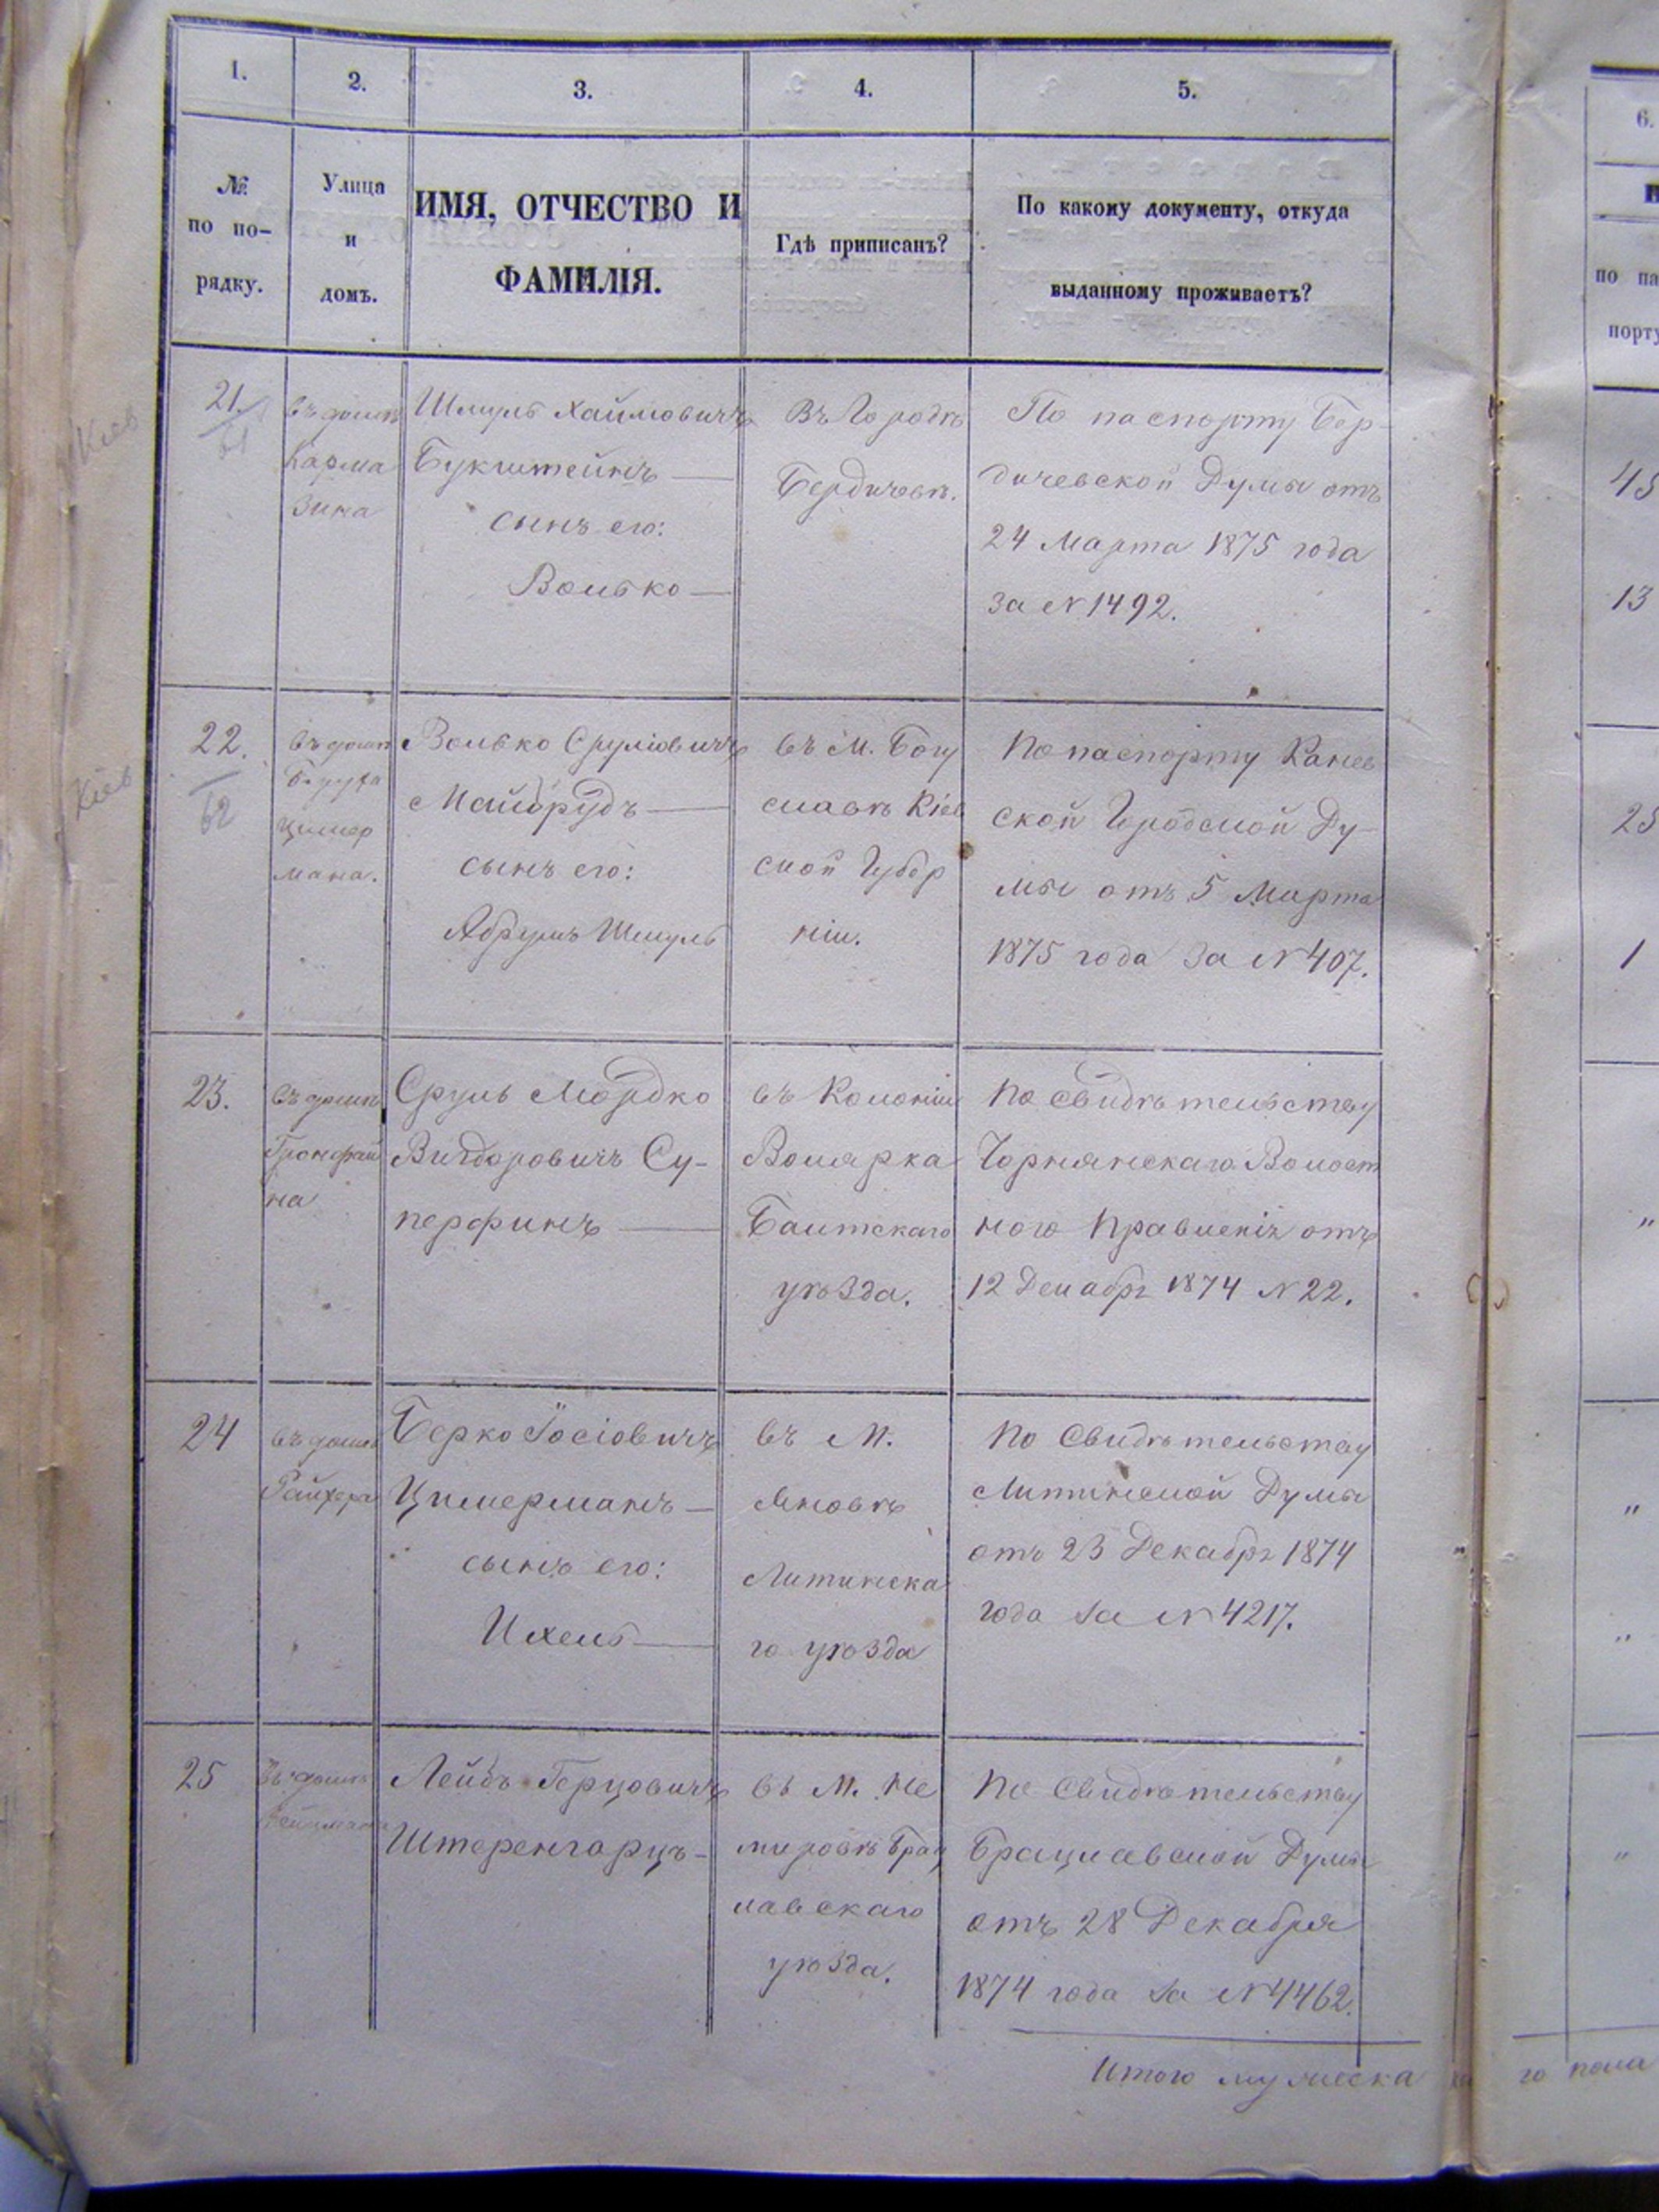 1.
2.
3.
4.
5.
6.
№
по по-
рядку.
Улица
и
домъ.
ИМЯ, ОТЧЕСТВО И
ФАМИЛІЯ.
Гдѣ приписанъ?
По какому документу, откуда
выданному проживаетъ?
по па
порту
21.
61
Кіев
въ домѣ
Карма
зина
Шмуль Хаймовичъ
Букштейнъ —
сынъ его:
Волько —
Въ Городѣ
Бердичевѣ.
По паспорту Бер-
дичевской Думы отъ
24 Марта 1875 года
за № 1492.
45
13
22.
62
Кіев
въ домѣ
Цимер
мана.
Волько Сруліовичъ
Майбрудъ —
сынъ его:
Абрумъ Шмуль
въ М. Богу
славѣ Кіев
ской Губер
ніи.
По паспорту Канев
ской Городской Ду-
мы отъ 5 Марта
1875 года за № 407.
25
1
23.
въ домѣ
Гронфай
на
Сруль Мордко
Вигдоровичъ Су-
перфинъ —
въ Колоніи
Волярка
Балтскаго
уѣзда.
По свидѣтельству
Чорнянскаго Волост
ного Правленія отъ
12 Декабря 1874 № 22.
"
24
въ домѣ
Райхера
Берко Іосіовичъ
Цимерманъ —
сынъ его:
Ихель —
въ М.
Яновѣ
Литинска
го уѣзда
По Свидѣтельству
Литинской Думы
отъ 23 Декабря 1874
года за № 4217.
"
"
25
Въ домѣ
Лейбъ Герцовичъ
Штеренгарцъ —
въ М. Не
мировѣ Брац
лавскаго
уѣзда.
По Свидѣтельству
Брацлавской Думы
отъ 28 Декабря
1874 года за № 4462.
"
Итого мужеска
го пола